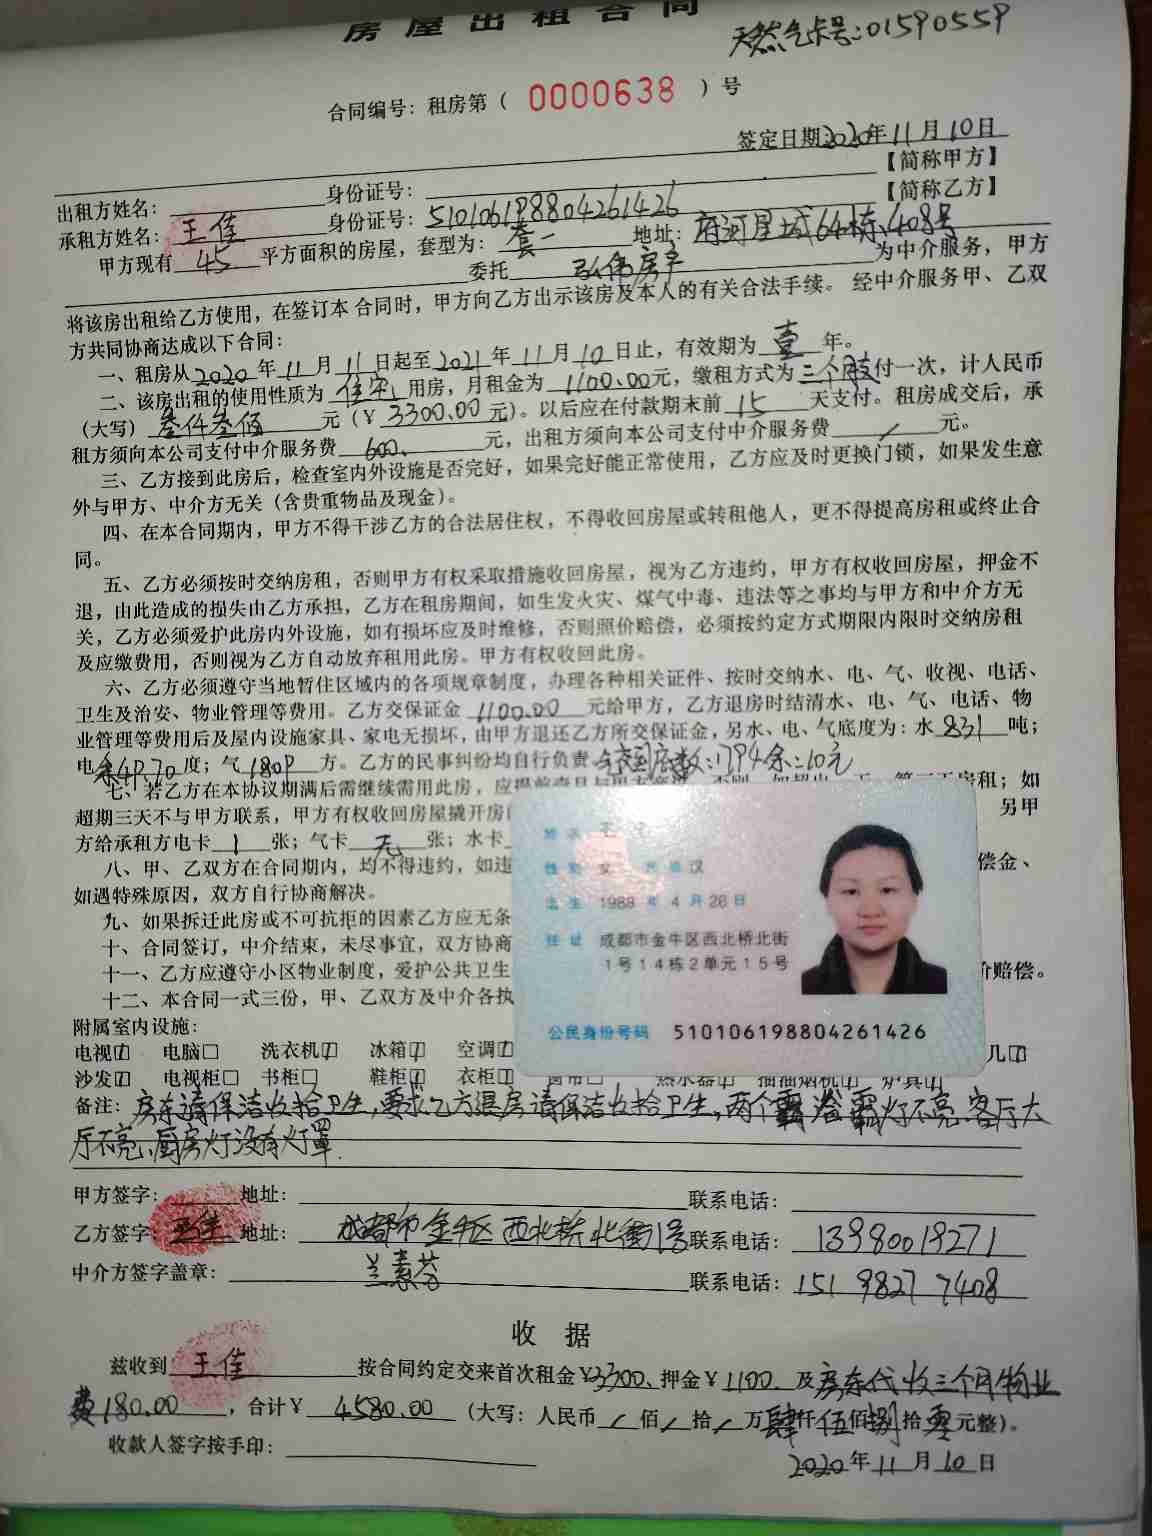 房屋出租合同
天然气卡号:01590559
合同编号：租房第（ 0000638 ）号
签定日期:2020年11月10日
出租方姓名： 身份证号： 【简称甲方】
承租方姓名：王佳 身份证号：510106198804261426 【简称乙方】
甲方现有 45 平方面积的房屋，套型为：套一 地址：府河星城64栋1408号
委托 弘伟房产 为中介服务，甲方
将该房出租给乙方使用，在签订本合同时，甲方向乙方出示该房及本人的有关合法手续。经中介服务甲、乙双
方共同协商达成以下合同：
一、租房从2020年11月11日起至2021年11月10日止，有效期为 壹 年。
二、该房出租的使用性质为 住宅 用房，月租金为 1100.00元，缴租方式为三个月支付一次，计人民币
（大写）叁仟叁佰 元（¥ 3300.00 元）。以后应在付款期末前 15 天支付。租房成交后，承
租方须向本公司支付中介服务费 600. 元，出租方须向本公司支付中介服务费 / 元。
三、乙方接到此房后，检查室内外设施是否完好，如果完好能正常使用，乙方应及时更换门锁，如果发生意
外与甲方、中介方无关（含贵重物品及现金）。
四、在本合同期内，甲方不得干涉乙方的合法居住权，不得收回房屋或转租他人，更不得提高房租或终止合
同。
五、乙方必须按时交纳房租，否则甲方有权采取措施收回房屋，视为乙方违约，甲方有权收回房屋，押金不
退，由此造成的损失由乙方承担，乙方在租房期间，如生发火灾、煤气中毒、违法等之事均与甲方和中介方无
关，乙方必须爱护此房内外设施，如有损坏应及时维修，否则照价赔偿，必须按约定方式期限内限时交纳房租
及应缴费用，否则视为乙方自动放弃租用此房。甲方有权收回此房。
六、乙方必须遵守当地暂住区域内的各项规章制度，办理各种相关证件、按时交纳水、电、气、收视、电话、
卫生及治安、物业管理等费用。乙方交保证金 1100.00 元给甲方，乙方退房时结清水、电、气、电话、物
业管理等费用后及屋内设施家具、家电无损坏，由甲方退还乙方所交保证金，另水、电、气底度为：水831吨；
电余49.70度；气1809 方。乙方的民事纠纷均自行负责 底数:1794余:10元
七、若乙方在本协议期满后需继续需用此房，应提前
房租；如
超期三天不与甲方联系，甲方有权收回房屋撬开房 另甲
方给承租方电卡 1 张；气卡 无 张；水卡
八、甲、乙双方在合同期内，均不得违约，如违 偿金、
如遇特殊原因，双方自行协商解决。
九、如果拆迁此房或不可抗拒的因素乙方应无条
十、合同签订，中介结束，未尽事宜，双方协商
十一、乙方应遵守小区物业制度，爱护公共卫生 价赔偿。
十二、本合同一式三份，甲、乙双方及中介各执
附属室内设施：
电视☑ 电脑□ 洗衣机☑ 冰箱☑ 空调☑ 几☑
沙发☑ 电视柜□ 书柜□ 鞋柜☑ 衣柜☑ 窗帘□ 热水器☑ 抽油烟机☑ 炉具☑
姓名 王佳
性别 女 民族 汉
出生 1988 年 4 月 26 日
住址 成都市金牛区西北桥北街
1号14栋2单元15号
公民身份号码 510106198804261426
备注：房东请保洁收拾卫生,要求乙方退房请保洁收拾卫生,两个 浴霸灯不亮、客厅大
厅不亮、厨房灯没有灯罩.
甲方签字： 地址： 联系电话：
乙方签字：王佳 地址： 成都市金牛区西北桥北街1号 联系电话： 13980019271
中介方签字盖章： 兰素芬 联系电话：15198277408
收 据
兹收到 王佳 按合同约定交来首次租金¥3300、押金¥1100. 及房东代收三个月物业
费180.00 ，合计¥ 4580.00 （大写：人民币 / 佰 / 拾 / 万肆仟伍佰捌拾零元整）。
收款人签字按手印：
2020年11月10日